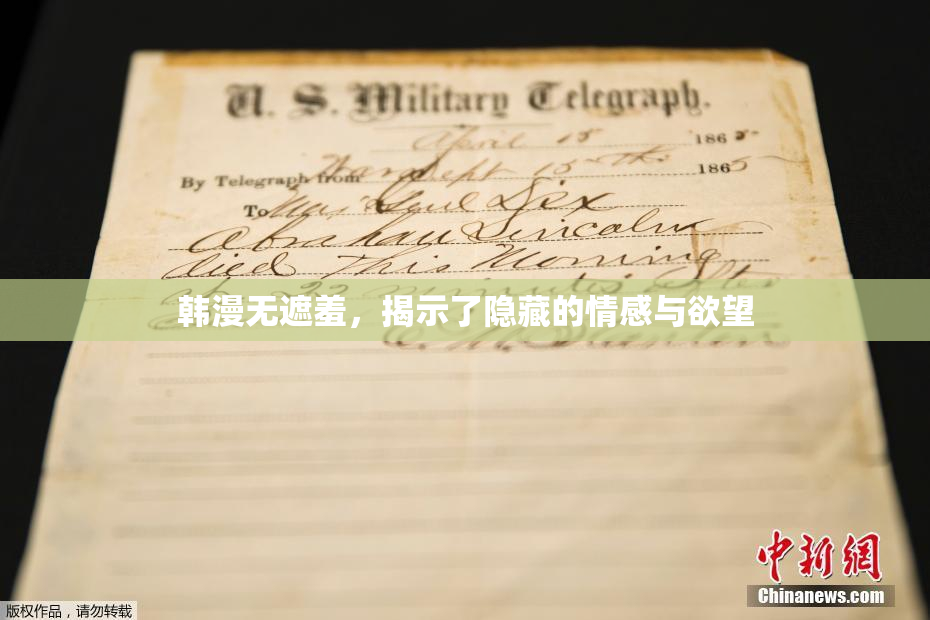 U. S. Military Telegraph.
April 15 1865
By Telegraph from War Dept 15th 1865
To Maj Genl Dix
Abraham Lincoln
died This Morning
at 22 minutes after
韩漫无遮羞，揭示了隐藏的情感与欲望
E. M. Stanton
中新网
Chinanews.com
版权作品，请勿转载